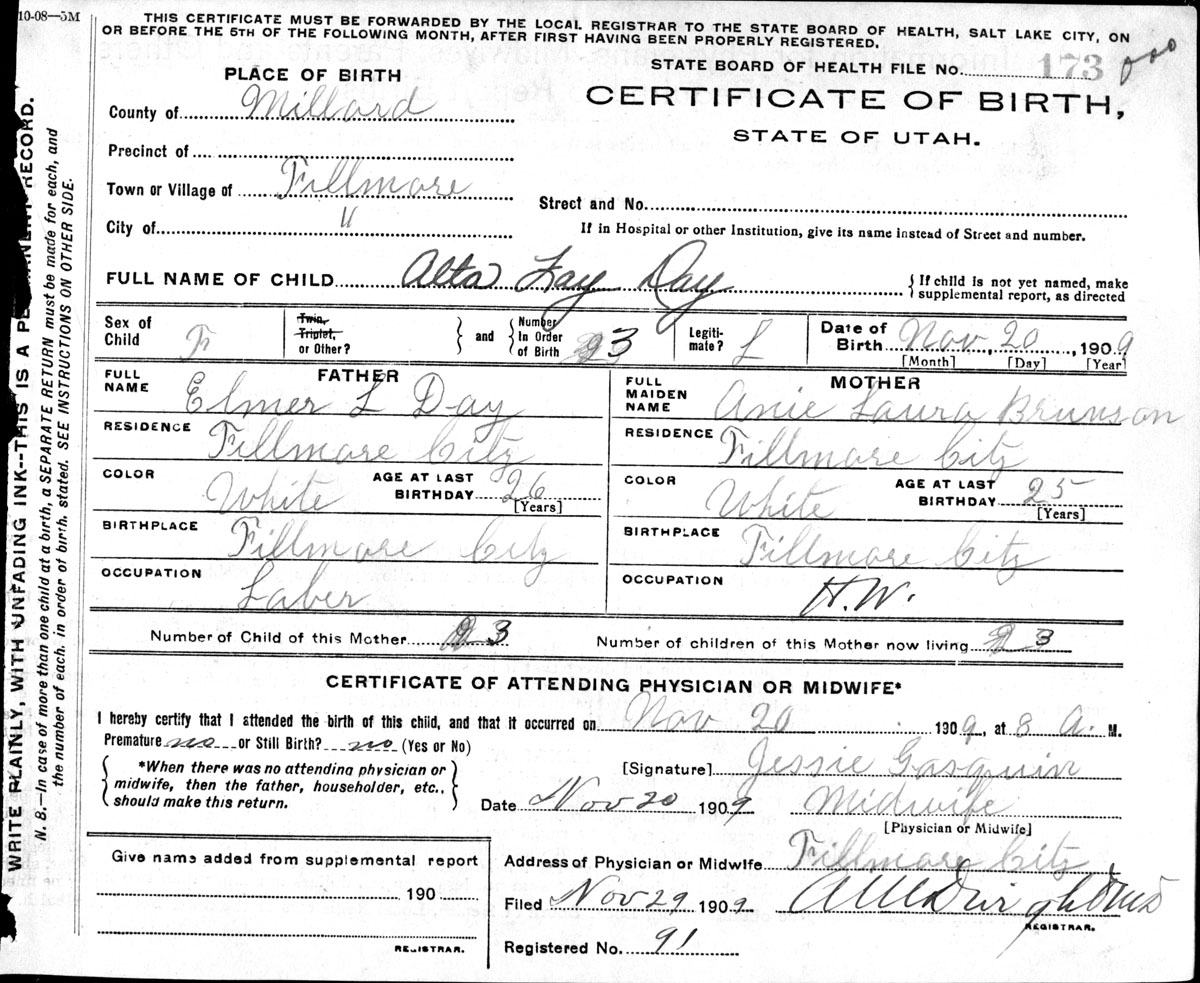 10-08—5M
THIS CERTIFICATE MUST BE FORWARDED BY THE LOCAL REGISTRAR TO THE STATE BOARD OF HEALTH, SALT LAKE CITY, ON
OR BEFORE THE 5TH OF THE FOLLOWING MONTH, AFTER FIRST HAVING BEEN PROPERLY REGISTERED.
STATE BOARD OF HEALTH FILE No. 173
CERTIFICATE OF BIRTH,
STATE OF UTAH.
PLACE OF BIRTH
County of Millard
Precinct of
Town or Village of Fillmore
City of "
Street and No.
If in Hospital or other Institution, give its name instead of Street and number.
FULL NAME OF CHILD Alta Fay Day
{ If child is not yet named, make
supplemental report, as directed
Sex of Child F
Twin, Triplet, or Other?
and
Number In Order of Birth 3
Legiti-mate? L
Date of Birth Nov, 20, 1909
[Month] [Day] [Year]
FATHER
FULL NAME Elmer L Day
RESIDENCE Fillmore City
COLOR White
AGE AT LAST BIRTHDAY 26
[Years]
BIRTHPLACE Fillmore City
OCCUPATION Laber
MOTHER
FULL MAIDEN NAME Anie Laura Brunson
RESIDENCE Fillmore City
COLOR White
AGE AT LAST BIRTHDAY 25
[Years]
BIRTHPLACE Fillmore City
OCCUPATION H.W.
Number of Child of this Mother 3
Number of children of this Mother now living 3
CERTIFICATE OF ATTENDING PHYSICIAN OR MIDWIFE*
I hereby certify that I attended the birth of this child, and that it occurred on Nov 20 1909, at 8 A. M.
Premature no or Still Birth? no (Yes or No)
*When there was no attending physician or
midwife, then the father, householder, etc.,
should make this return.
[Signature] Jessie Gasquin
Date Nov 20 1909 Midwife
[Physician or Midwife]
Address of Physician or Midwife Fillmore City
Filed Nov 29 1909
REGISTRAR.
Registered No. 91
Give name added from supplemental report
190
REGISTRAR.
WRITE PLAINLY, WITH UNFADING INK--THIS IS A PERMANENT RECORD.
N. B.—In case of more than one child at a birth, a SEPARATE RETURN must be made for each, and
the number of each, in order of birth, stated. SEE INSTRUCTIONS ON OTHER SIDE.